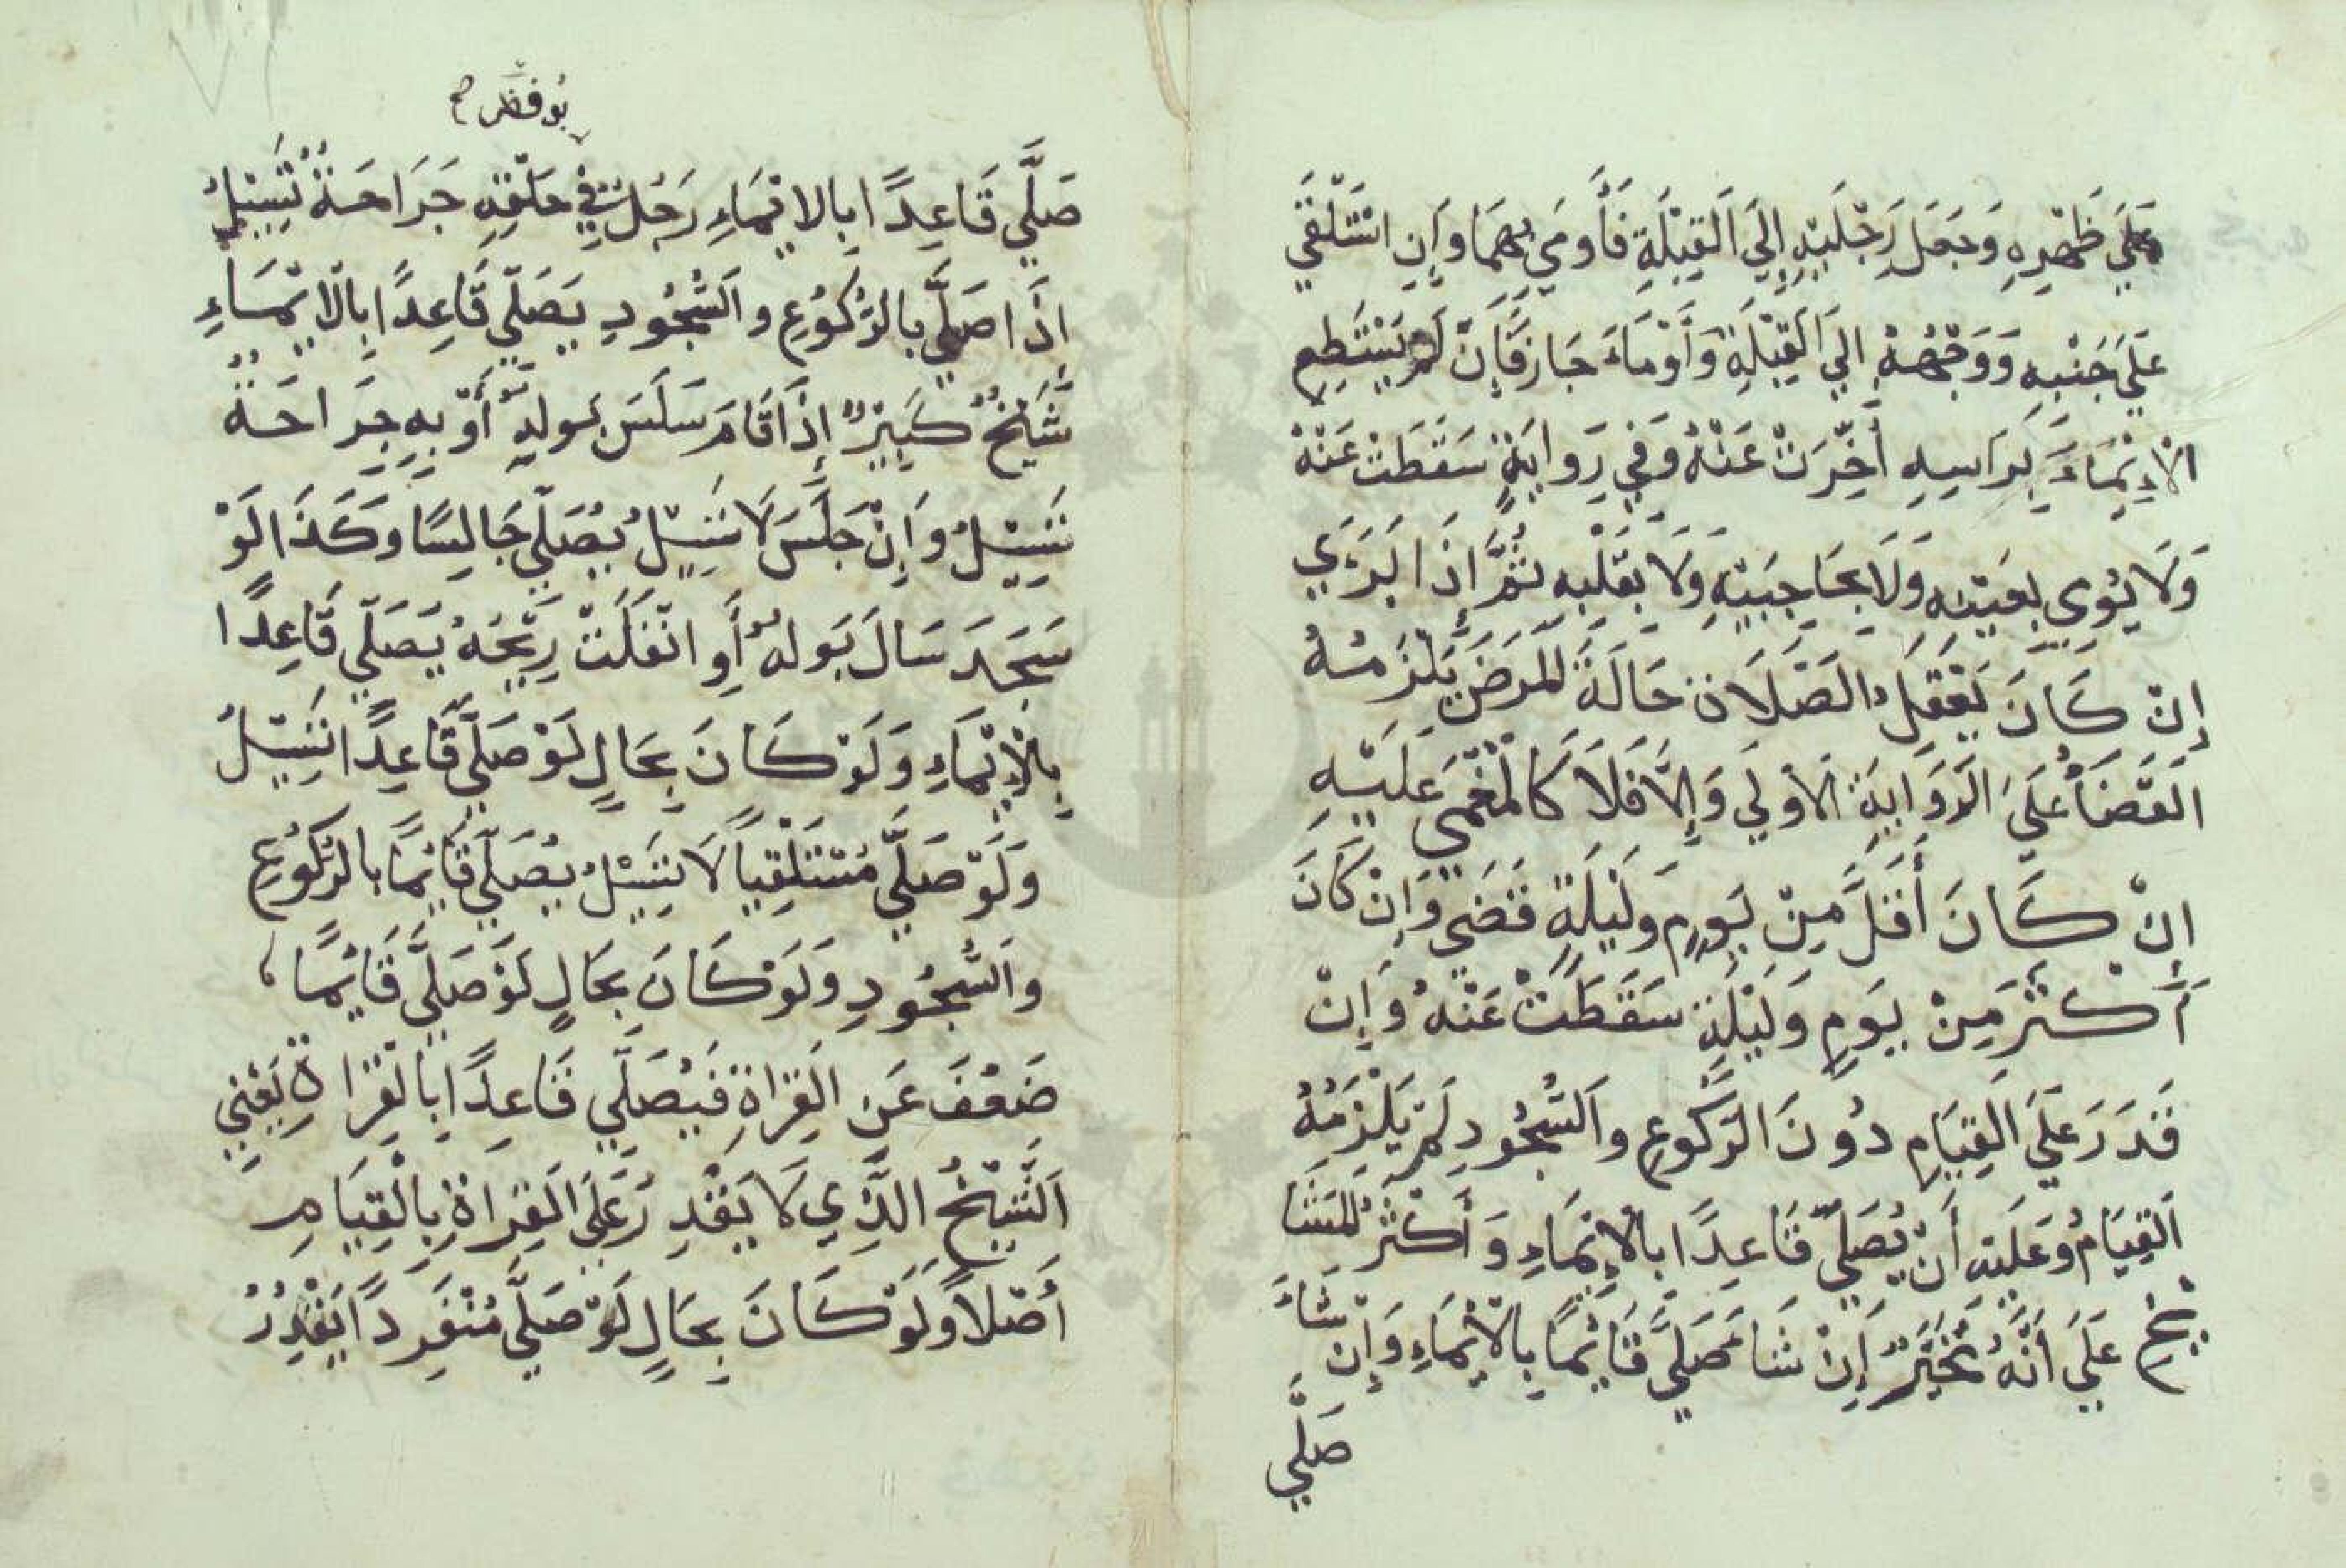 عَلَي ظَهْرِهِ وَجَعَلَ رِجْلَيْهِ إِلَي الْقِبْلَةِ فَأَومَي بِهِمَا وَإِنِ اسْتَلْقَي
عَلَي جَنْبِهِ وَوَجْهُهُ إِلَي الْقِبْلَةِ وَأَوْمَاءَ جَازَ فَإِنْ لَمْ يَسْتَطِعِ
الْإِيْمَاءَ بِرَاسِهِ أُخِّرَتْ عَنْهُ وَفِي رِوَايَةٍ سَقَطَتْ عَنْهُ
وَلَا يُوْمِي بِعَيْنِهِ وَلَا بِحَاجِبَيْهِ وَلَا بِقَلْبِهِ ثُمَّ إِذَا بَرَئَ
إِنْ كَانَ يَعْقِلُ الصَّلَاةَ حَالَةَ الْمَرَضِ يَلْزَمُهُ
الْقَضَاءُ عَلَيَ الرِّوَايَةِ الْأُولَي وَإِلَّا فَلَا كَالْمُغْمَي عَلَيْهِ
إِنْ كَانَ أَقَلَّ مِنْ يَومٍ وَلَيْلَةٍ قَضَي وَإِنْ كَانَ
أَكْثَرَ مِنْ يَومٍ وَلَيْلَةٍ سَقَطَتْ عَنْهُ وَإِنْ
قَدَرَ عَلَيَ الْقِيَامِ دُونَ الرُّكُوعِ وَالسُّجُودِ لَمْ يَلْزَمْهُ
الْقِيَامُ وَعَلَيْهِ أَنْ يُصَلِّيَ قَاعِدًا بِالْإِيْمَاءِ وَأَكْثَرُ الْمَشَا
يِخِ عَلَيَ أَنَّهُ مُخَيَّرٌ إِنْ شَاءَ صَلَّي قَايِمًا بِالْإِيْمَاءِ وَإِنْ شَاءَ
صَلَّي
صَلَّي قَاعِدًا بِالايْمَاءِ رَجُلٌ فِي حَلْقِهِ جَرَاحَةٌ تَسِيْلُ
إِذَا صَلَّي بِالرُّكُوعِ وَالسُّجُودِ يُصَلِّي قَاعِدًا بِالْايْمَاءِ
شَيْخٌ كَبِيْرٌ إِذَا قَامَ سَلَسَ بَولُهُ أَوْ بِهِ جِرَاحَةٌ
تَسِيْلُ وَإِنْ جَلَسَ لَا تَسِيْلُ يُصَلِّي جَالِسًا وَكَذَا لَوْ
سَجَدَ سَالَ بَولُهُ أَوِ انْفَلَتَتْ رِيْحُهُ يُصَلِّي قَاعِدًا
بِالْإِيْمَاءِ وَلَوْ كَانَ بِحَالٍ لَوْ صَلَّي قَاعِدًا تَسِيْلُ
وَلَوْ صَلَّي مُسْتَلْقِيًا لَا تَسِيْلُ يُصَلِّي قَايِمًا بِالرُّكُوعِ
وَالسُّجُودِ وَلَوْ كَانَ بِحَالٍ لَوْ صَلَّي قَايِمًا،
ضَعُفَ عَنِ الْقِرَاةِ فَيُصَلِّي قَاعِدًا بِالْقِرَاةِ يَعْنِي
الشَّيْخُ الَّذِي لَا يَقْدِرُ عَلَي الْقِرَاةِ بِالْقِيَامِ
أَصْلاً وَلَوْ كَانَ بِحَالٍ لَوْ صَلَّي مُنْفَرِدًا يَقْدِرُ